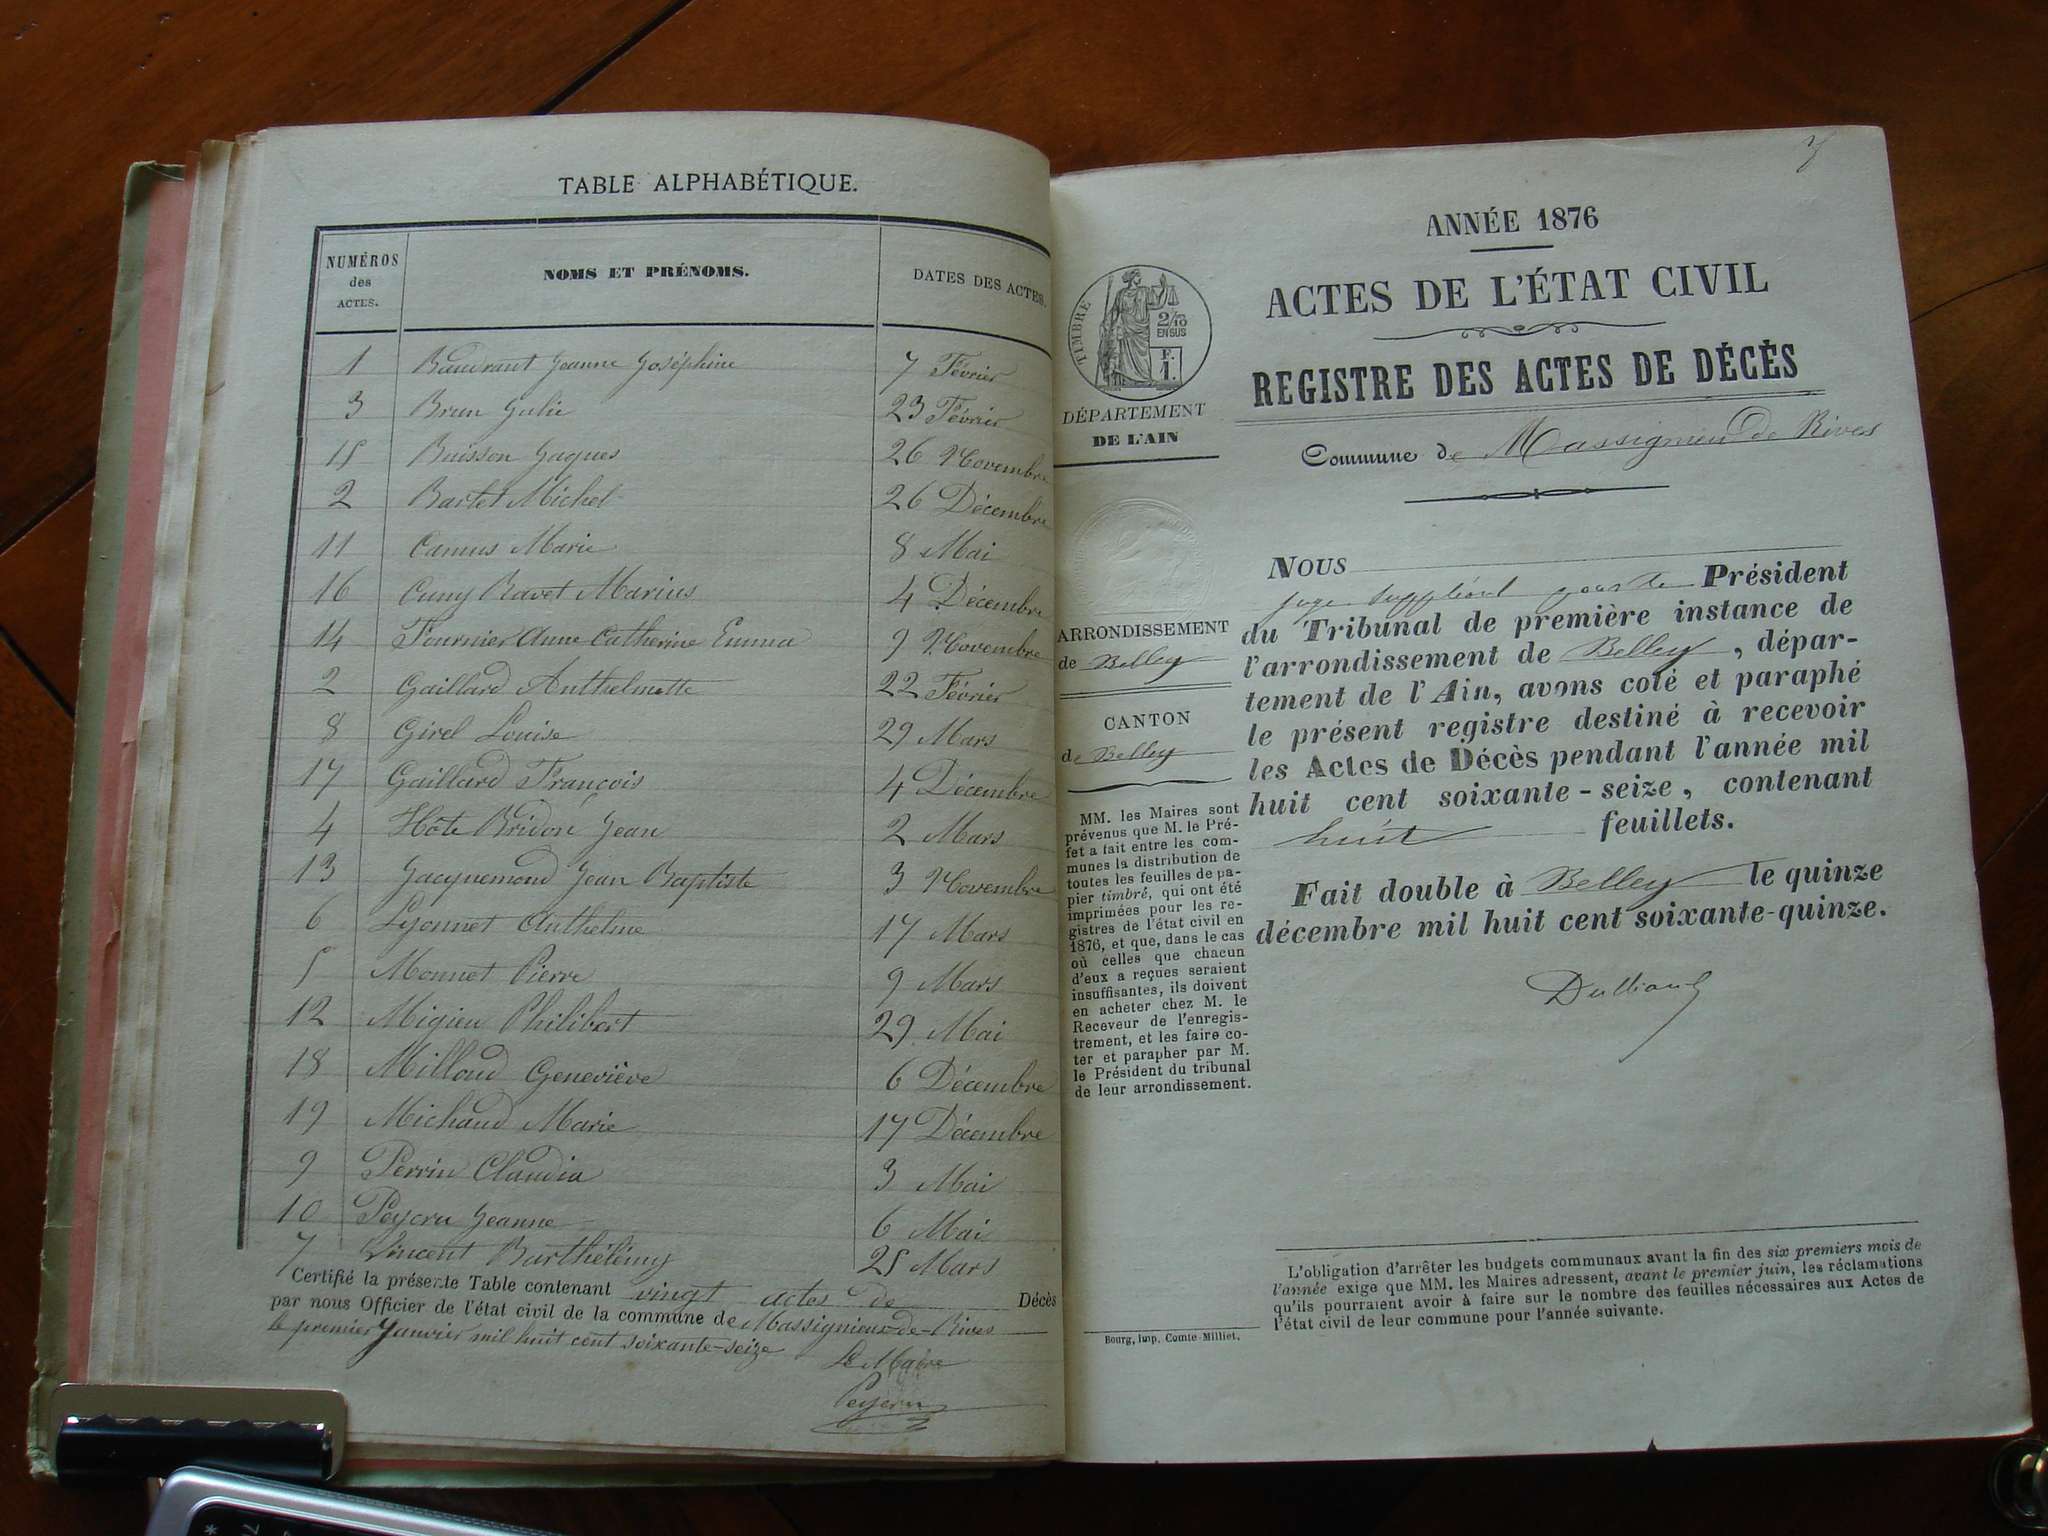 TABLE ALPHABÉTIQUE.
NUMÉROS des ACTES. NOMS ET PRÉNOMS. DATES DES ACTES.
1 Baudrant Jeanne Joséphine 7 Février
3 Brun Julie 23 Février
15 Buisson Jaques 26 Novembre
2 Bartet Michel 26 Décembre
11 Camus Marie 8 Mai
16 Cuny Ravet Marius 4 Décembre
14 Fournier Anne Catherine Emma 9 Novembre
2 Gaillard Anthelmette 22 Février
8 Girel Louise 29 Mars
17 Gaillard François 4 Décembre
4 Hôte Bridon Jean 2 Mars
13 Jacquemond Jean Baptiste 3 Novembre
6 Lyonnet Anthelme 17 Mars
5 Monnet Pierre 9 Mars
12 Migieu Philibert 29 Mai
18 Milloud Geneviève 6 Décembre
19 Michaud Marie 17 Décembre
9 Perrin Claudia 3 Mai
10 Peycru Jeanne 6 Mai
7 Vincent Barthélémy 25 Mars
Certifié la présente Table contenant vingt actes de Décès
par nous Officier de l'état civil de la commune de Massignieux-de-Rives
le premier Janvier mil huit cent soixante-seize
Le Maire
Peycru
ANNÉE 1876
ACTES DE L'ÉTAT CIVIL
REGISTRE DES ACTES DE DÉCÈS
Commune de Massignieu de Rives
TIMBRE
2/10
EN SUS
F.
1.
DÉPARTEMENT
DE L'AIN
ARRONDISSEMENT
de Belley
CANTON
de Belley
MM. les Maires sont
prévenus que M. le Pré-
fet a fait entre les com-
munes la distribution de
toutes les feuilles de pa-
pier timbré, qui ont été
imprimées pour les re-
gistres de l'état civil en
1876, et que, dans le cas
où celles que chacun
d'eux a reçues seraient
insuffisantes, ils doivent
en acheter chez M. le
Receveur de l'enregis-
trement, et les faire co-
ter et parapher par M.
le Président du tribunal
de leur arrondissement.
NOUS
juge suppléant pour le Président
du Tribunal de première instance de
l'arrondissement de Belley, dépar-
tement de l'Ain, avons coté et paraphé
le présent registre destiné à recevoir
les Actes de Décès pendant l'année mil
huit cent soixante-seize, contenant
huit feuillets.
Fait double à Belley le quinze
décembre mil huit cent soixante-quinze.
L'obligation d'arrêter les budgets communaux avant la fin des six premiers mois de
l'année exige que MM. les Maires adressent, avant le premier juin, les réclamations
qu'ils pourraient avoir à faire sur le nombre des feuilles nécessaires aux Actes de
l'état civil de leur commune pour l'année suivante.
Bourg, Imp. Comte-Milliet.